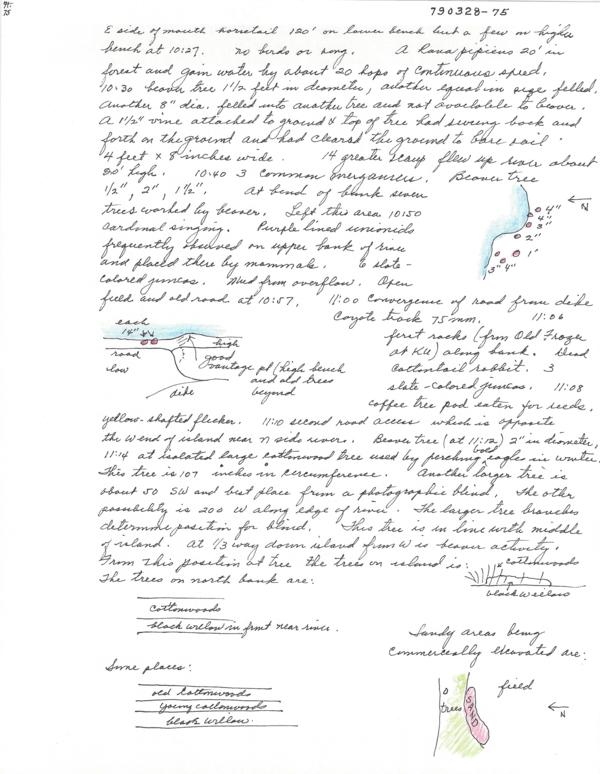 79-
75
790328-75
E side of mouth horsetail 120' on lower bench but a few on higher
bench at 10:27. no birds or song. A Rana pipiens 20' in
forest and gain water by about 20 hops of continuous speed.
10:30 beaver tree 1½ feet in diameter, another equal in size felled.
Another 8" dia. felled into another tree and not available to beaver.
A 1½" vine attached to ground & top of tree had swung back and
forth on the ground and had cleared the ground to bare soil.
4 feet x 8 inches wide. 14 greater scaup flew up river about
20' high. 10:40 3 common mergansers. Beaver tree
½", 2", 1½". At bend of bank seven
trees worked by beaver. Left this area 10:50
cardinal singing. Purple lined unionids
frequently observed on upper bank of river
and placed there by mammals. 6 slate-
colored juncos. Mud from overflow. Open
field and old road at 10:57. 11:00 convergence of road from dike
4"
4"
3"
2"
1"
3" 4"
N
Coyote track 75mm. 11:06
first rocks (from Old Frozer
at KU) along bank. Dead
cottontail rabbit. 3
slate-colored juncos. 11:08
coffee tree pod eaten for seeds.
each
14"
road
low
high
good
vantage pt (high bench
and old trees
beyond
dike
yellow-shafted flicker. 11:10 second road access which is opposite
the W end of island near N side river. Beaver tree (at 11:12) 2" in diameter,
11:14 at isolated large cottonwood tree used by perching bald eagle in winter.
This tree is 107 inches in circumference. Another larger tree is
about 50 SW and best place from a photographic blind. The other
possibility is 200 W along edge of river. The larger tree branches
determine position for blind. This tree is in line with middle
of island. At 1/3 way down island from W is beaver activity.
From this position at tree the trees on island is:
cottonwoods
black willow
The trees on north bank are:
cottonwoods
black willow in front near river.
Some places:
old cottonwoods
young cottonwoods
black willow.
Sandy areas being
commercially excavated are:
trees
SAND
field
N